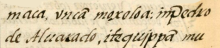 maca, vncã moxoloa: in pedro
de Aluarado, itequippa mu